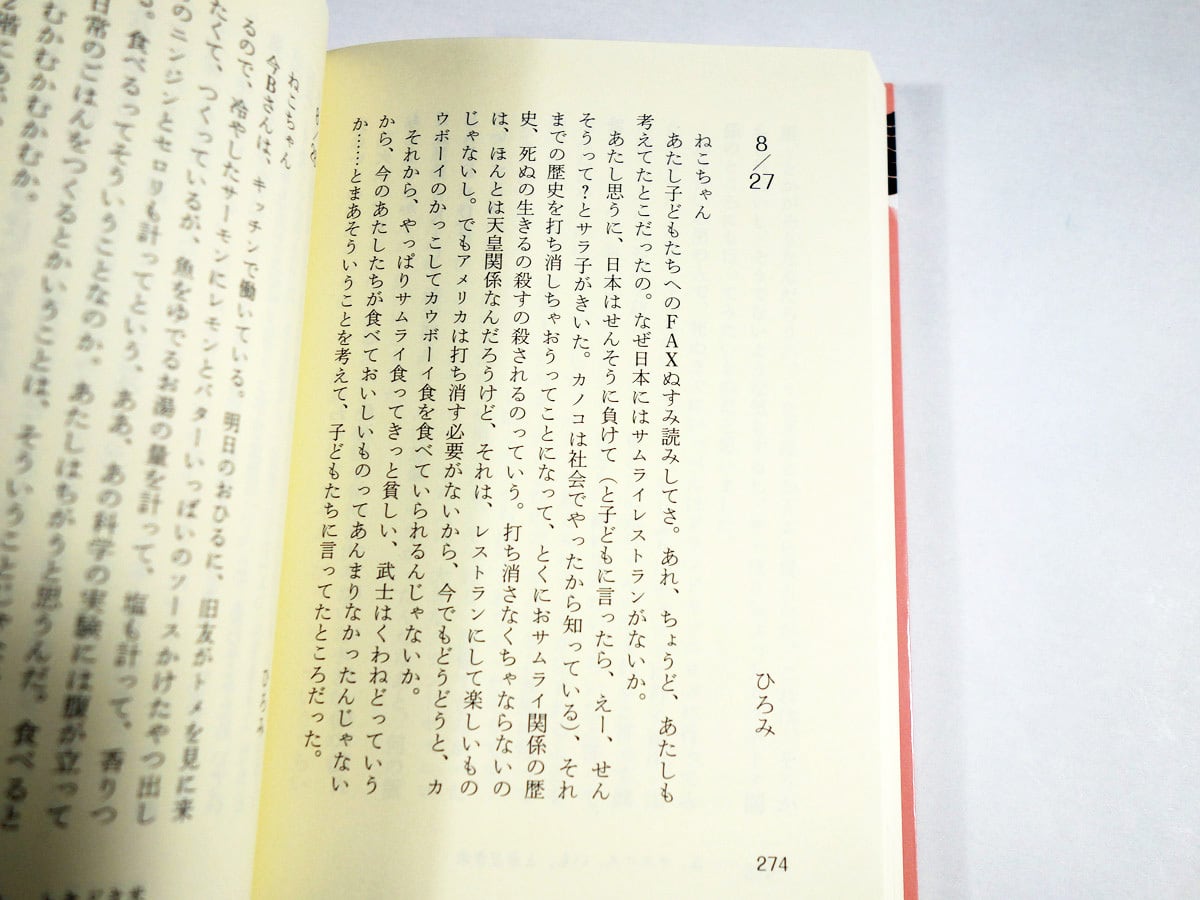 8/27
ひろみ
ねこちゃん
あたし子どもたちへのFAXぬすみ読みしてさ。あれ、ちょうど、あたしも
考えてたとこだったの。なぜ日本にはサムライレストランがないか。
あたし思うに、日本はせんそうに負けて（と子どもに言ったら、えー、せん
そうって?とサラ子がきいた。カノコは社会でやったから知っている）、それ
までの歴史を打ち消しちゃおうってことになって、とくにおサムライ関係の歴
史、死ぬの生きるの殺すの殺されるのっていう。打ち消さなくちゃならないの
は、ほんとは天皇関係なんだろうけど、それは、レストランにして楽しいもの
じゃないし。でもアメリカは打ち消す必要がないから、今でもどうどうと、カ
ウボーイのかっこしてカウボーイ食を食べていられるんじゃないか。
それから、やっぱりサムライ食ってきっと貧しい、武士はくわねどっていう
から、今のあたしたちが食べておいしいものってあんまりなかったんじゃない
か……とまあそういうことを考えて、子どもたちに言ってたところだった。
274
ひろみ
ねこちゃん
今Bさんは、キッチンで働いている。明日のおひるに、旧友がトメを見に来
るので、冷やしたサーモンにレモンとバターいっぱいのソースかけたやつ出し
たくて、つくっているが、魚をゆでるお湯の量を計って、塩も計って、香りつ
のニンジンとセロリも計ってという、ああ、あの科学の実験には腹が立って
る。食べるってそういうことなのか。あたしはちがうと思うんだ。食べると
日常のごはんをつくるとかいうことは、そういうことじゃな
むかむかむかむか。